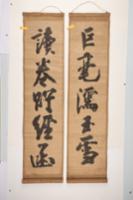 巨毫濡玉雪
讀卷盱經函